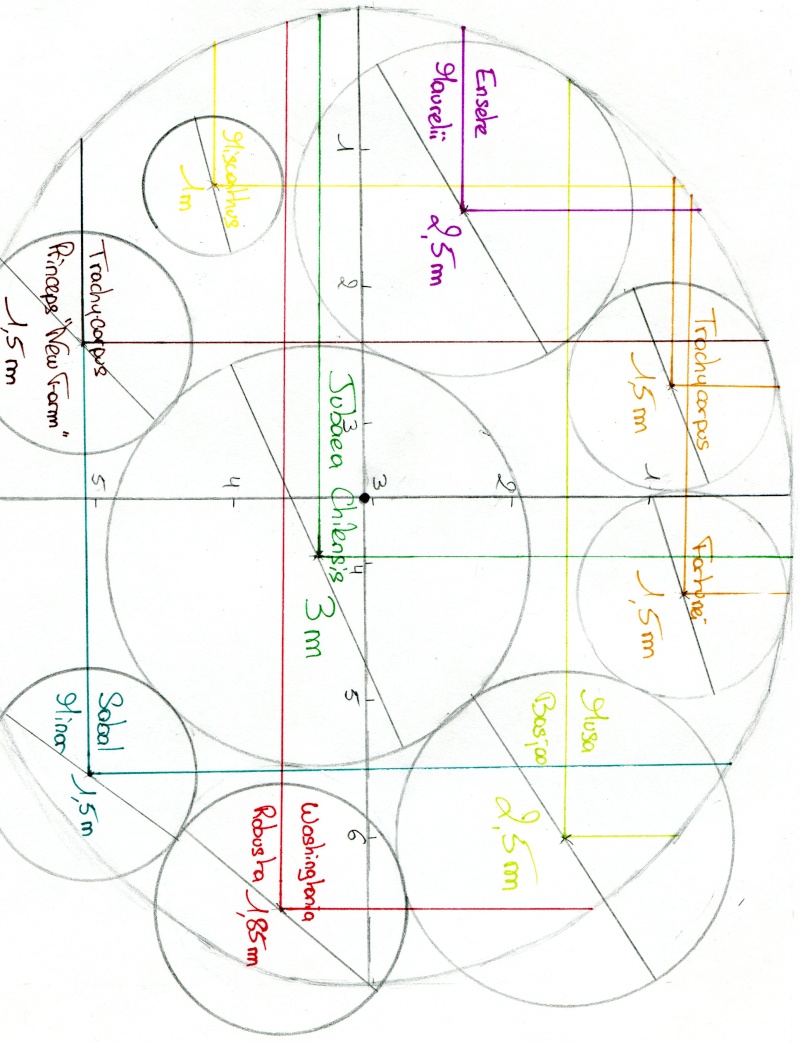 Trachycarpus
1,5 m
Fortunei
1,5 m
1
Musa
Basjoo
2,5 m
2
Ensete
Maurelii
2,5 m
3
1
2
3
4
5
6
Jubaea Chilensis
3 m
Washingtonia
Robusta 1,85 m
4
Miscanthus
1 m
5
Trachycarpus
Princeps "New Form"
1,5 m
Sabal
Minor
1,5 m